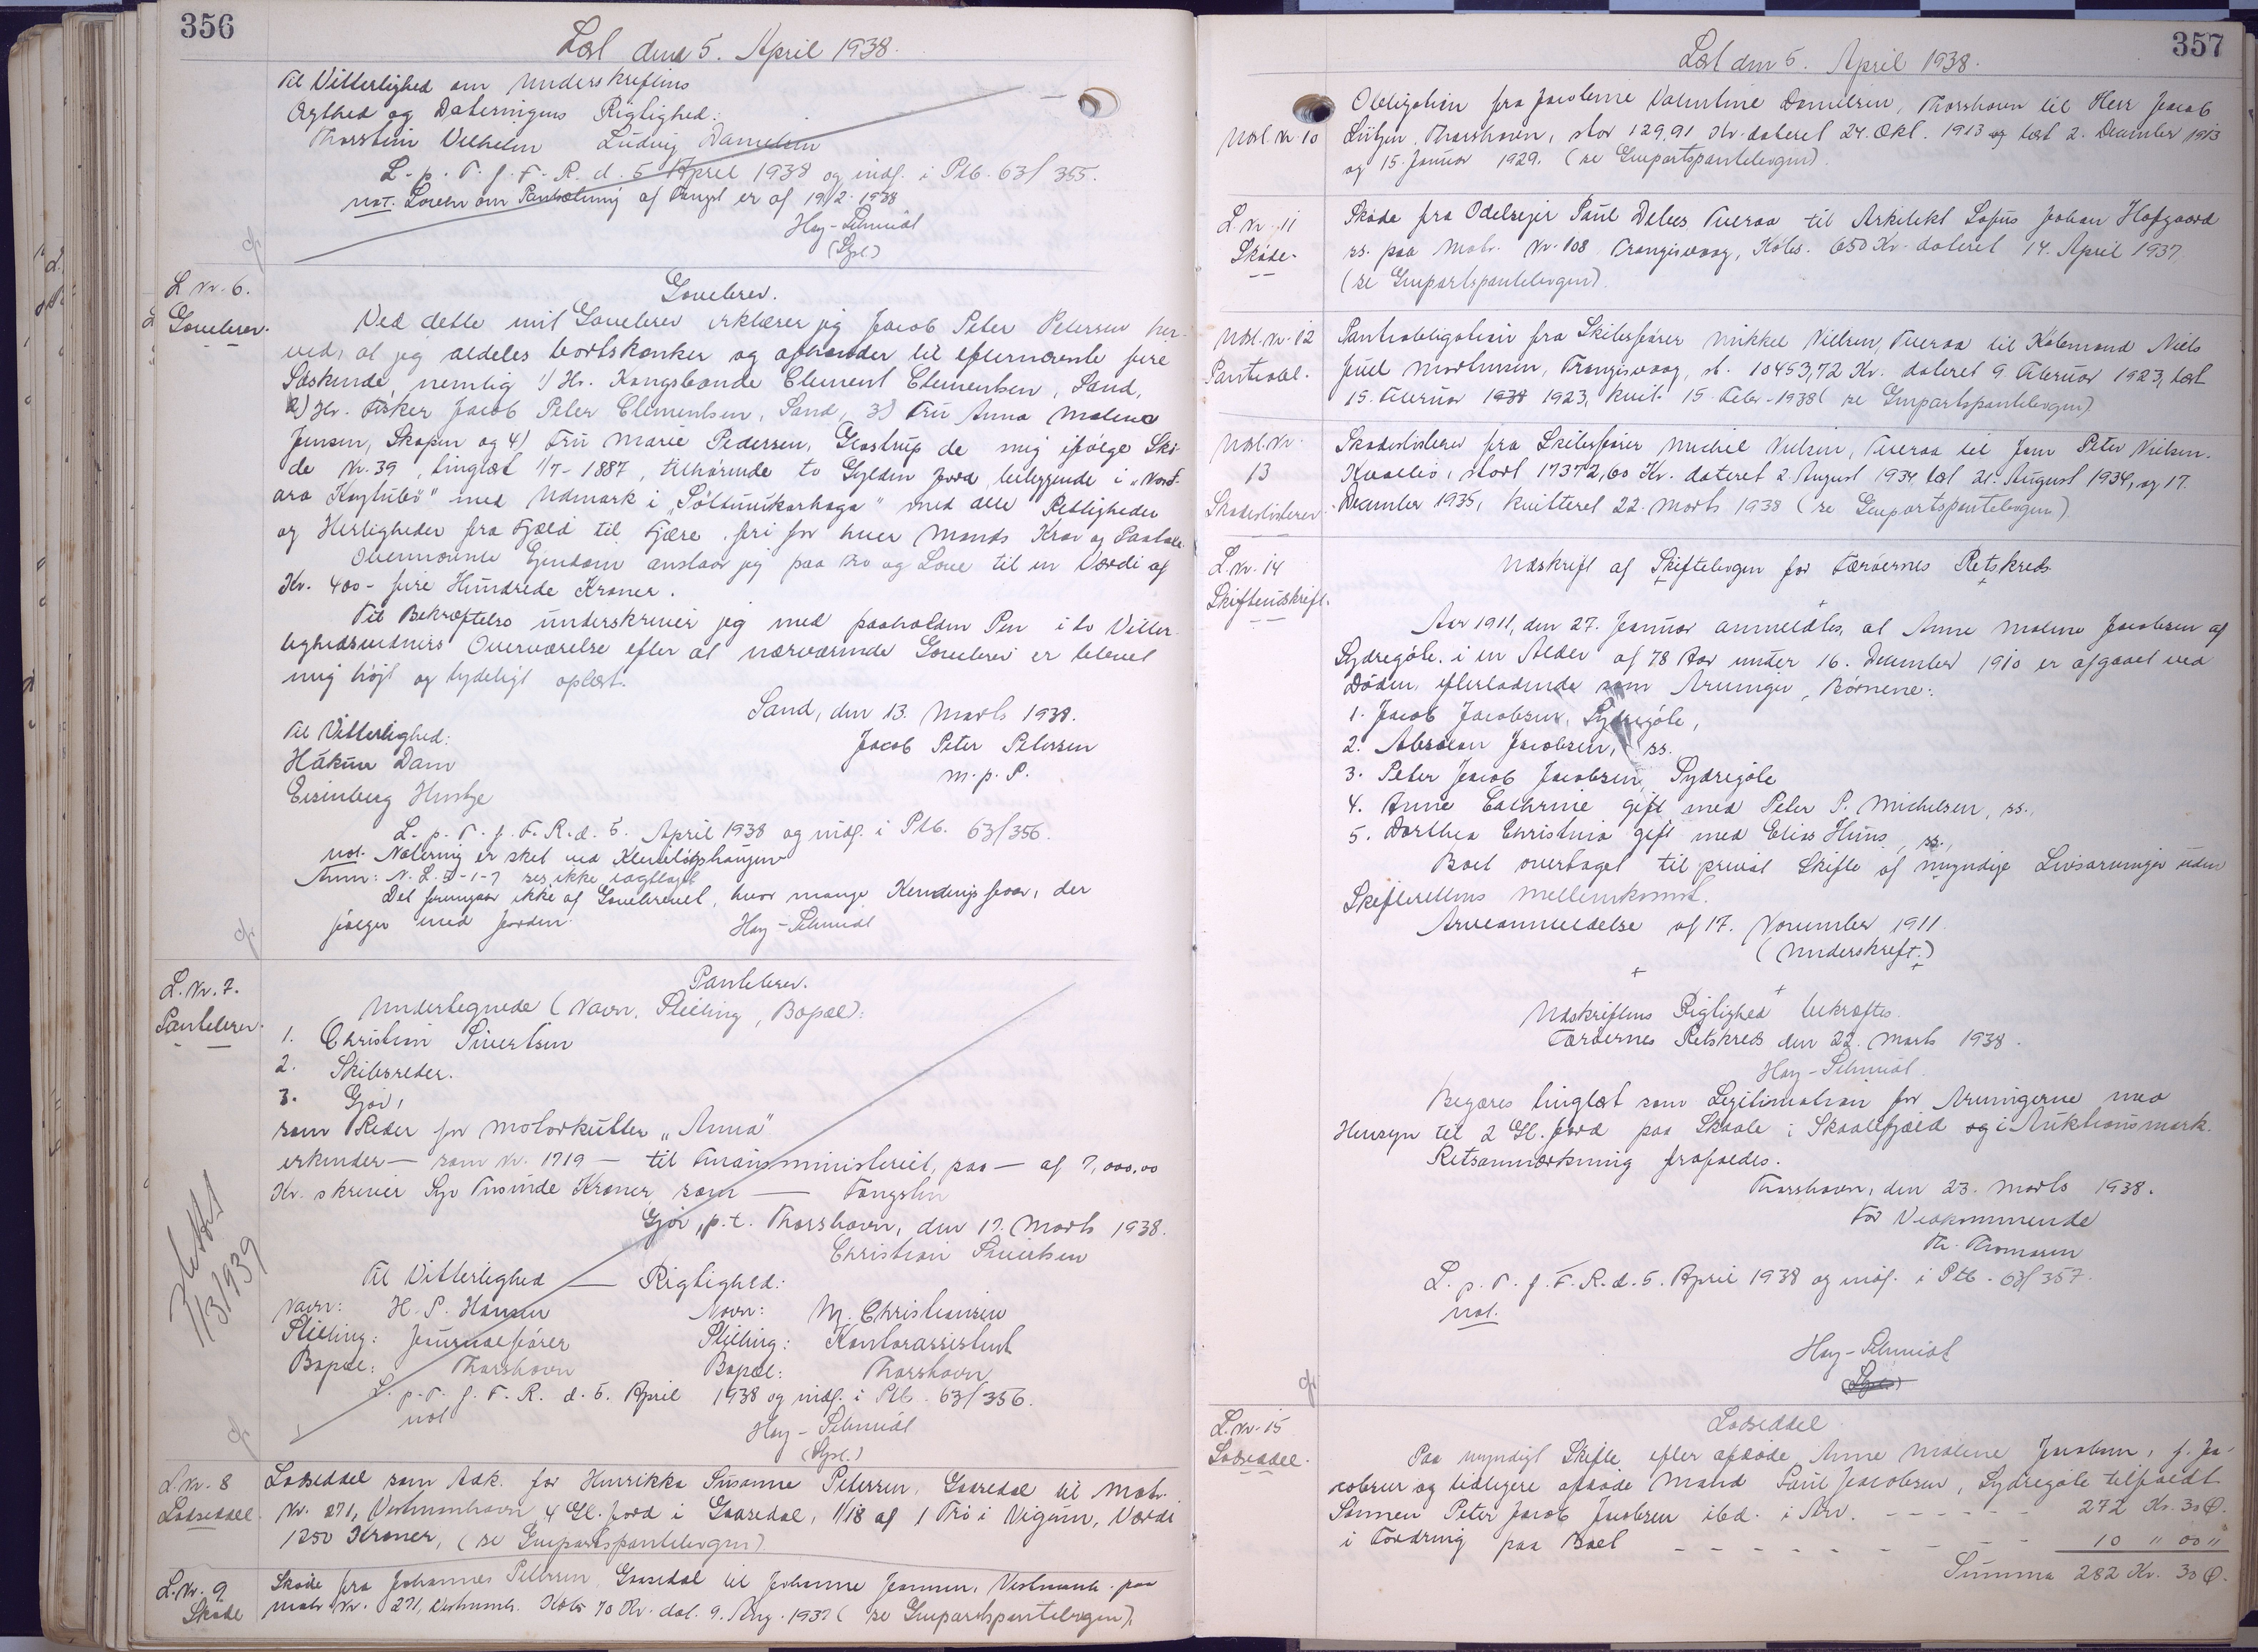 356
Læst den 5. April 1938.
Til Vitterlighed om Underskriftens
Ægthed og Dateringens Rigtighed:
Thorstein Vilhelm Ludvig Danielsen
L. p. T. f. F. R. d. 5 April 1938 og indf. i Ptb. 63/355.
not. Loven om Pantsætning af Fangst er af 19/2 1938
Hay-Schmidt
(Gpl.)
L. Nr. 6.
Gavebrev.
Gavebrev.
Ved dette mit Gavebrev erklærer jeg Jacob Peter Petersen her-
ved, at jeg aldeles bortskænker og afhænder til efternævnte fire
Søskende, nemlig 1) Hr. Kongsbonde Clement Clementsen, Sand,
2) Hr. Fisker Jacob Peter Clementsen, Sand, 3) Fru Anna Malena
Jensen, Skopun og 4) Fru Marie Pedersen, Glostrup de mig ifølge Skø-
de Nr. 39, tinglæst 1/7-1887, tilhørende to Gylden Jord, beliggende i "Nord-
ara Koytubø" med Udmark i "Søltunikarhaga" med alle Rettigheder
og Herligheder fra Fjæld til Fjære, fri for hver Mands Krav og Paatale.
Ovennævnte Ejendom anslaar jeg paa Tro og Love til en Værdi af
Kr. 400 - fire Hundrede Kroner.
Til Bekræftelse underskriver jeg med paaholden Pen i to Vitter-
lighedsvidners Overværelse efter at nærværende Gavebrev er blevet
mig højt og tydeligt oplæst.
Sand, den 13. Marts 1938.
Til Vitterlighed:
Jacob Peter Petersen
Hákun Dam
m. p. P.
Eisenberg
L. p. T. f. F. R. d. 5. April 1938 og indf. i Ptb. 63/356.
not. Notering er sket ved
Anm: N. L. 5-1-7 ses ikke iagttaget
Det fremgaar ikke af Gavebrevet, hvor mange Kendingsfaar, der
følger med Jorden.
Hay-Schmidt
L. Nr. 7.
Pantebrev.
Pantebrev.
Undertegnede (Navn, Stilling, Bopæl):
1. Christian Sivertsen
2. Skibsreder.
3. Gjov,
som Reder for Motorkutter "Anna"
erkender — som Nr. 1719 — til Finansministeriet, paa — af 7,000,00
Kr. skriver Syv Tusinde Kroner, som — Fangsten
Gjov, p.t. Thorshavn, den 17. Marts 1938.
Christian Sivertsen
Til Vitterlighed — Rigtighed:
Navn: H. P. Hansen Navn: M. Christiansen
Stilling: Journalfører Stilling: Kontorassistent
Bopæl: Thorshavn Bopæl: Thorshavn
L. p. T. f. F. R. d. 5. April 1938 og indf. i Ptb. 63/356.
not
Hay-Schmidt
(Gpl.)
Slettet
1/3 1939
L. Nr. 8
Lodseddel.
Lodseddel som Adk. for Henrikka Susanne Petersen, Gaasedal til Matr.
Nr. 271, Vestmanhavn, 4 Gl. Jord i Gaasedal, 1/18 af 1 Trö i Vigum, Værdi
1250 Kroner, (se Genpartspantebogen)
L. Nr. 9.
Skøde
Skøde fra Johannes Petersen Gaasedal til Johanne Joensen, Vestmanh. paa
Matr. Nr. 271, Vestmanh. Købs 70 Kr. dat. 9. Aug. 1937 (se Genpartspantebogen).
357
Læst den 5. April 1938.
Udsl. Nr. 10
Obligation fra Jacobine Valentine Danielsen, Thorshavn til Herr Jacob
Lützen, Thorshavn, stor 129,91 Kr. dateret 24. Okt. 1913 og læst 2. December 1913
og 15. Januar 1929. (se Genpartspantebogen).
L. Nr. 11
Skøde.
Skøde fra Odelsejer Paul Debes Tveraa til Arkitekt Sofus Johan Hofgaard
ss. paa Matr. Nr. 108 Trangisvaag, Købs. 650 Kr. dateret 14. April 1937
(se Genpartspantebogen).
Udsl. Nr. 12
Pantobl.
Pantobligation fra Skibsfører Mikkel Nielsen, Tveraa til Købmand Niels
Juul Mortensen, Trangisvaag, st. 10453,72 Kr. dateret 9. Februar 1923, læst
15. Februar 1938 1923, kvit. 15. Febr. 1938 (se Genpartspantebogen)
Udsl. Nr.
13
Skadesløsbrev
Skadesløsbrev fra Skibsfører Michel Nielsen, Tveraa til Joen Peter Nielsen.
Kvalbø, stort 17372,60 Kr. dateret 2. August 1934 læst 21. August 1934, og 17.
December 1935, kvitteret 22. Marts 1938 (se Genpartspantebogen)
L. Nr. 14
Skifteudskrift.
Udskrift af Skiftebogen for Færøernes Retskreds
Aar 1911, den 27. Januar anmeldtes, at Anne Malene Jacobsen af
Sydregøte, i en Alder af 78 Aar under 16. December 1910 er afgaaet ved
Døden, efterladende som Arvinger, Børnene:
1. Jacob Jacobsen, Sydregøte,
2. Absalon Jacobsen, ss.
3. Peter Jacob Jacobsen, Sydregøte
4. Anne Cathrine gift med Peter P. Michelsen, ss.,
5. Dorthea Christina gift med Elias Hans, ss.,
Boet overtaget til privat Skifte af myndige Livsarvinger uden
Skifterettens Mellemkomst.
Arveanmeldelse af 17. November 1911
(Underskrift.)
Udskriftens Rigtighed bekræftes.
Færøernes Retskreds den 22. Marts 1938.
Hay-Schmidt.
Begæres tinglæst som Legitimation for Arvingerne med
Hensyn til 2 Gl. Jord paa Skaale i Skaalefjæld og i Auktionsmark.
Retsanmærkning frafaldes.
Thorshavn, den 23. Marts 1938.
For Vedkommende
Th. Thomsen
L. p. T. f. F. R. d. 5. April 1938 og indf. i Ptb. 63/357.
not.
Hay-Schmidt
L. Nr. 15
Lodseddel.
Lodseddel
Paa myndigt Skifte efter afdøde Anne Malene Jacobsen, f. Ja-
cobsen og tidligere afdøde Mand Paul Jacobsen, Sydregøte tilfaldt
Sønnen Peter Jacob Jacobsen ibd. i Arv. - - - - - 272 Kr. 30 Ø.
i Fordring paa Boet - - - - - - - - 10 " 00 "
Summa 282 Kr. 30 Ø.